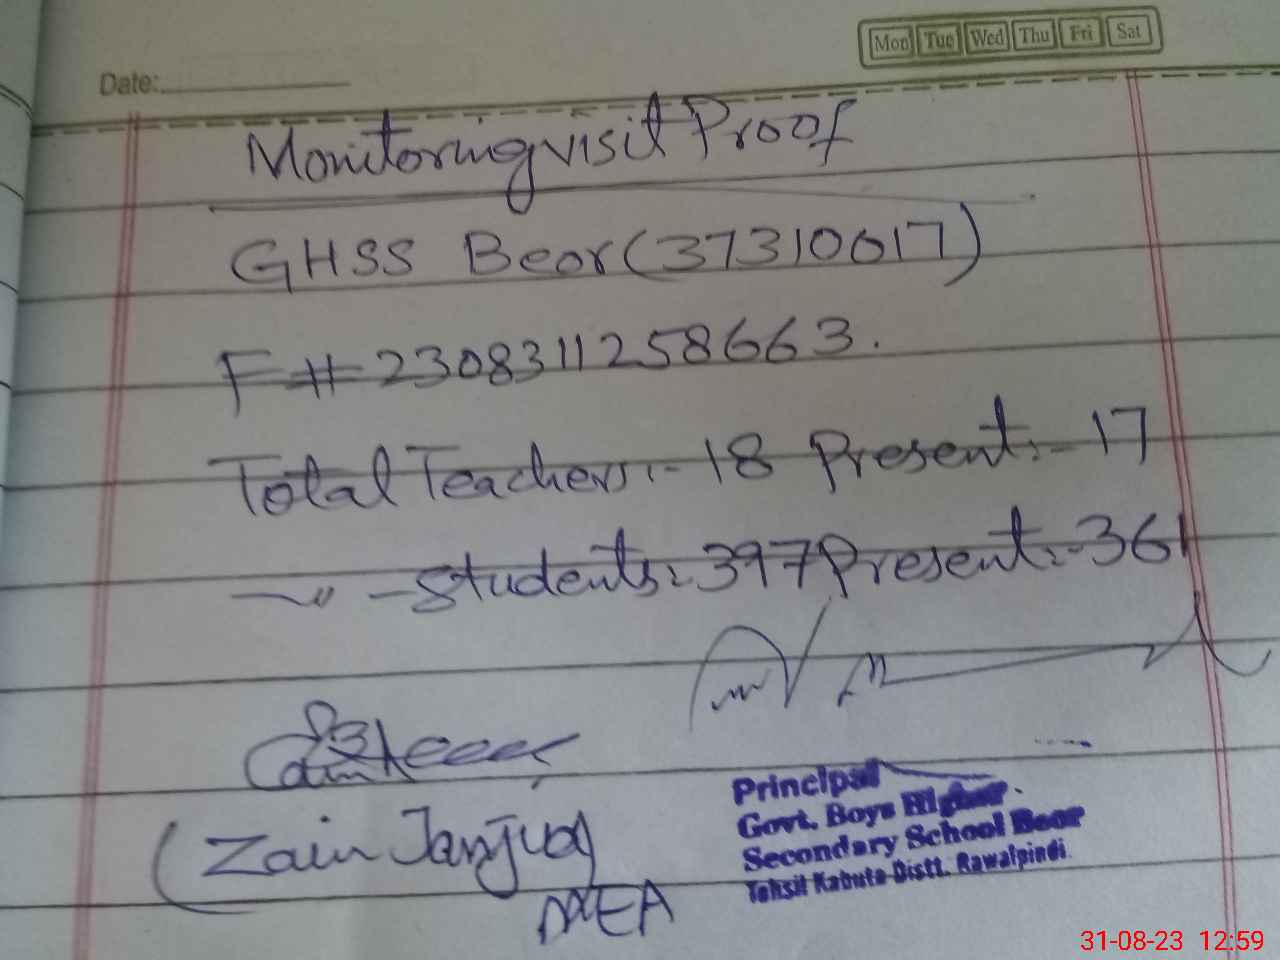 Mon Tue Wed Thu Fri Sat
Date:
Monitoring visit Proof
GHSS Beor (37310017)
F # 2308311258663.
Total Teachers:- 18 Present:- 17
-〃- Students: 397 Present:- 361
(Zain Janjua)
MEA
Principal
Govt. Boys Higher
Secondary School Beor
Tehsil Kahuta Distt. Rawalpindi
31-08-23 12:59